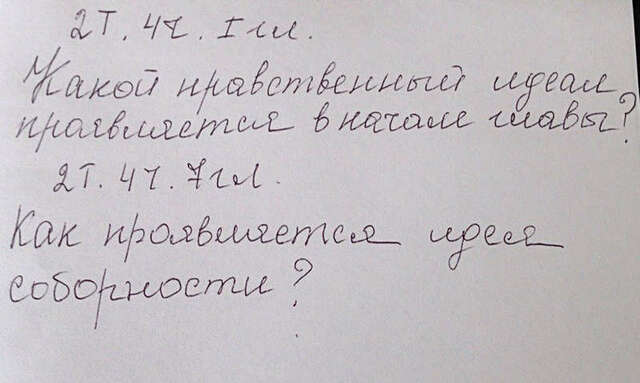 2Т. 4ч. I гл.
Какой нравственный идеал
проявляется в начале главы?
2Т. 4ч. 7гл.
Как проявляется идея
соборности?